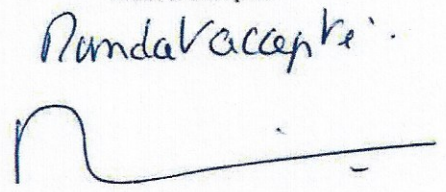 Mandat accepté.